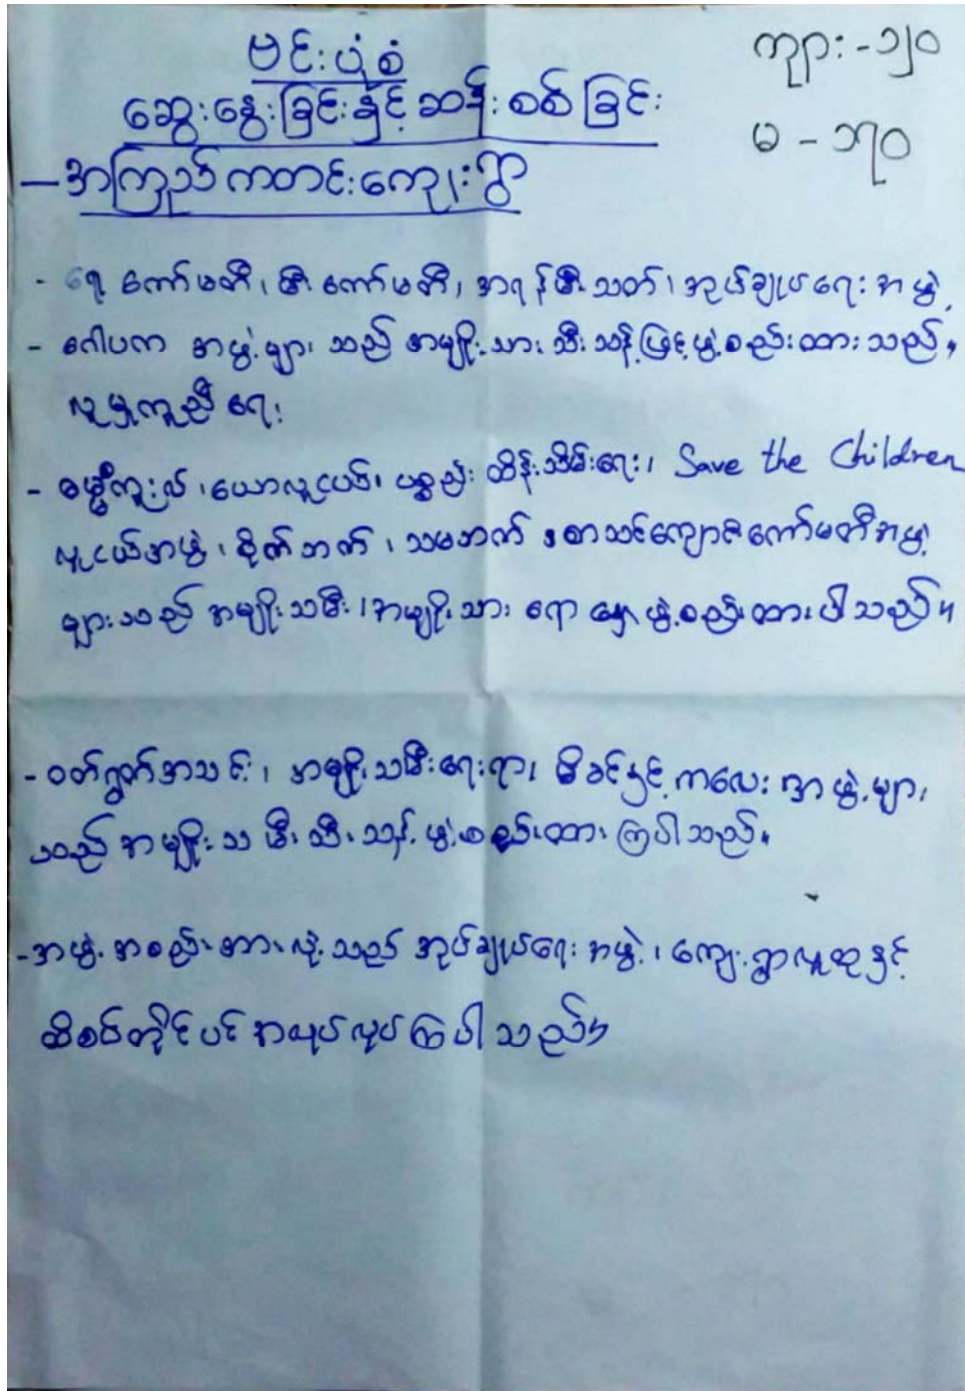 ဗင်းပုံစံ
ဆွေးနွေးခြင်းနှင့်ဆန်းစစ်ခြင်း
ကျား - ၁၂၀
မ - ၁၇၀
— အကြည်ကတင်းကျေးရွာ
- ရေ ကော်မတီ၊ မီး ကော်မတီ၊ အရန်မီးသတ်၊ အုပ်ချုပ်ရေး အဖွဲ့
- ဂေါပက အဖွဲ့များ သည် အမျိုးသား သီးသန့် ဖြင့် ဖွဲ့စည်းထားသည်။
လူမှုကူညီရေး
- ၊ယောလူငယ်၊ ပစ္စည်း ထိန်းသိမ်းရေး၊ Save the Children
လူငယ်အဖွဲ့၊ စိုက်ဘက်၊ သမဘက် ၊စာသင်ကျောင်းကော်မတီအဖွဲ့
များသည် အမျိုးသမီး၊အမျိုးသား ရော နှော ဖွဲ့စည်းထားပါသည်။
- ဝတ်ရွတ်အသင်း၊ အမျိုးသမီးရေးရာ၊ မိခင်နှင့် ကလေး အဖွဲ့များ
သည် အမျိုးသမီးသီးသန့် ဖွဲ့စည်းထား ကြပါသည်။
- အဖွဲ့အစည်းအားလုံးသည် အုပ်ချုပ်ရေး အဖွဲ့၊ ကျေးရွာလူထုနှင့်
ထိစပ်တိုင်ပင် အလုပ်လုပ်ကြပါသည်။